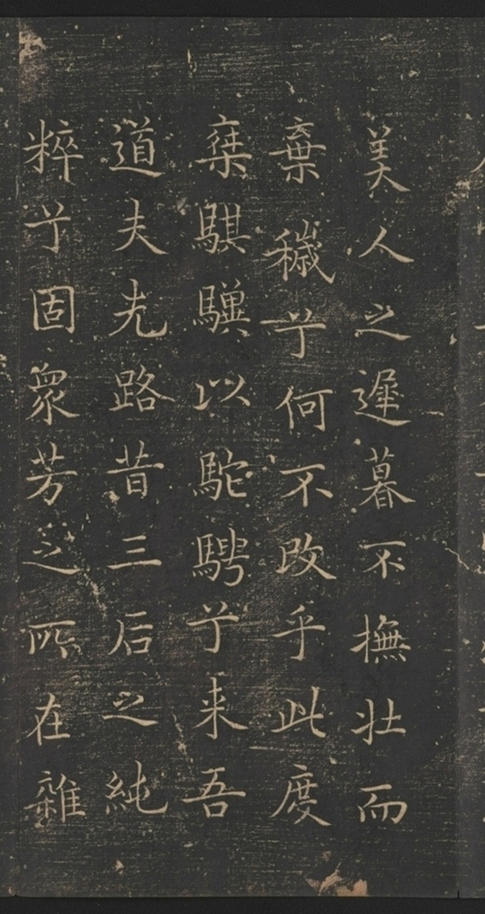 美人之遲暮不撫壯而
棄穢兮何不改乎此度
椉騏驥以駝騁兮来吾
道夫先路昔三后之純
粹兮固衆芳之所在雜